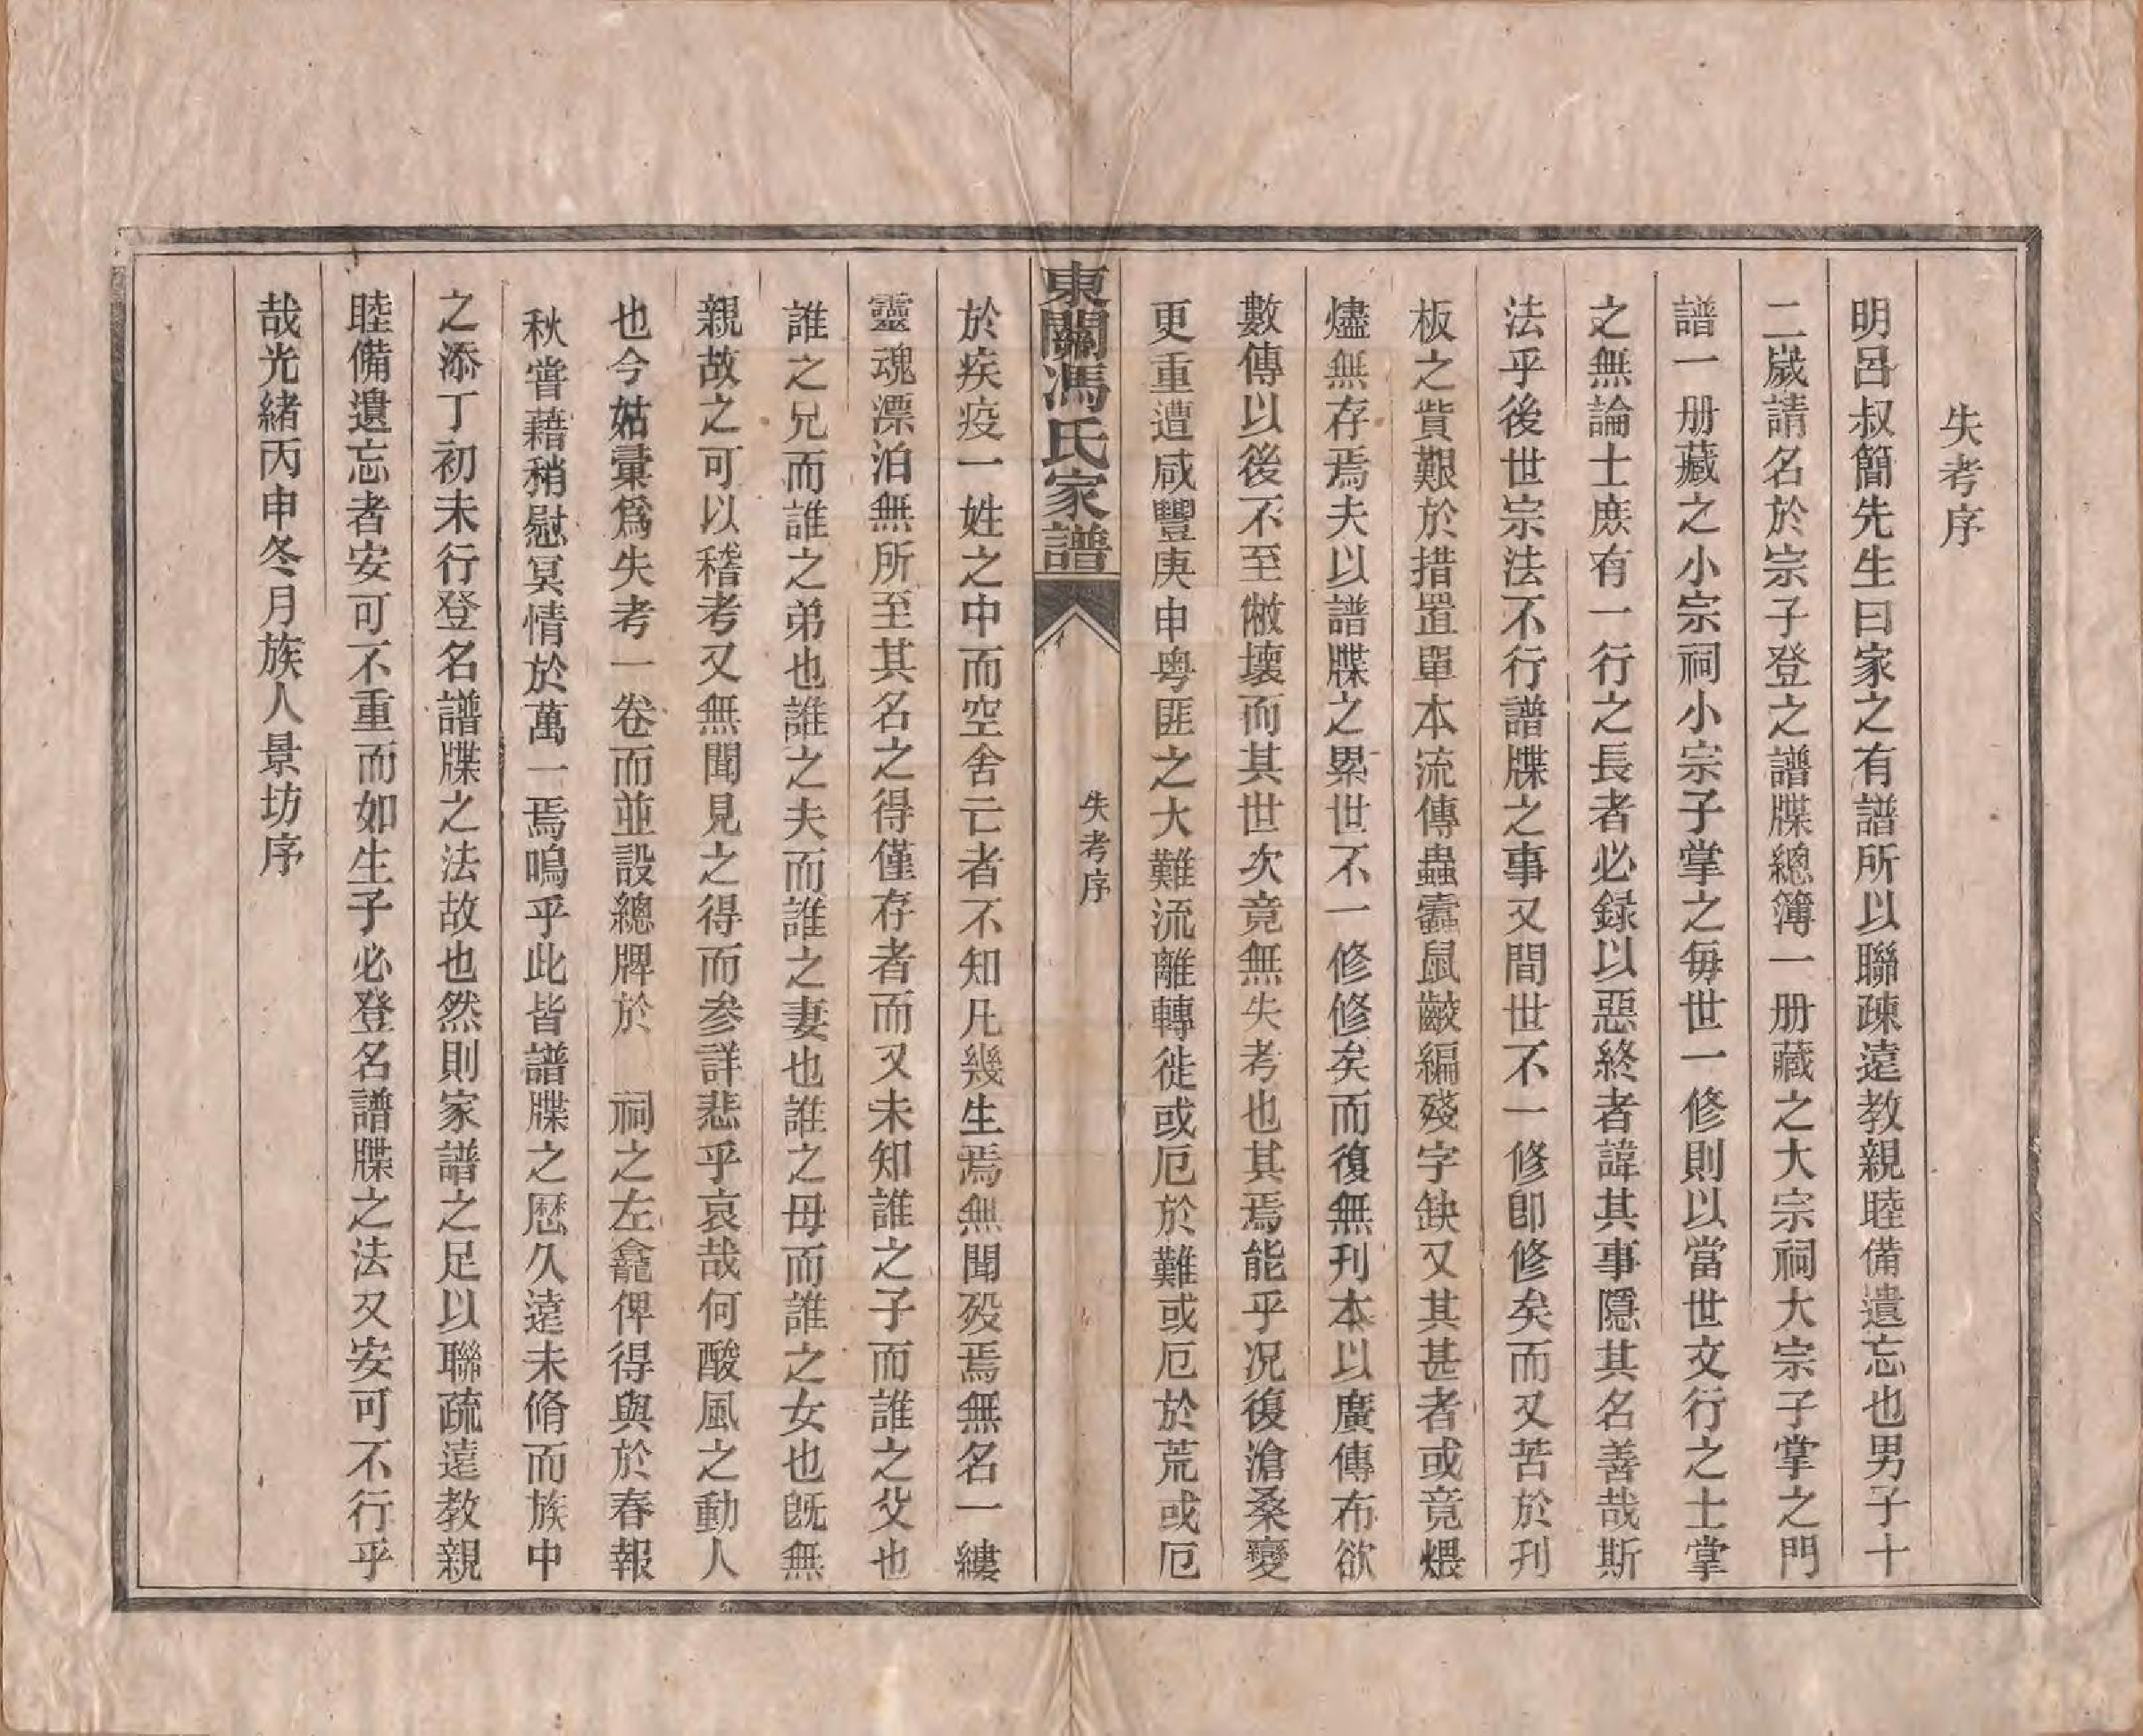 失考序
明呂叔簡先生曰家之有譜所以聯疎遠教親睦備遺忘也男子十
二歲請名於宗子登之譜牒總簿一册藏之大宗祠大宗子掌之門
譜一册藏之小宗祠小宗子掌之每世一修則以當世文行之士掌
之無論士庶有一行之長者必録以惡終者諱其事隱其名善哉斯
法乎後世宗法不行譜牒之事又間世不一修卽修矣而又苦於刋
板之貲艱於措置單本流傳蟲蠹鼠齩編殘字缺又其甚者或竟煨
燼無存焉夫以譜牒之累世不一修修矣而復無刋本以廣傳布欲
數傳以後不至敝壞而其世次竟無失考也其焉能乎况復滄桑變
更重遭咸豐庚申粤匪之大難流離轉徙或厄於難或厄於荒或厄
東關馮氏家譜
失考序
於疾疫一姓之中而空舍亡者不知凡幾生焉無聞殁焉無名一縷
靈魂漂泊無所至其名之得僅存者而又未知誰之子而誰之父也
誰之兄而誰之弟也誰之夫而誰之妻也誰之母而誰之女也旣無
親故之可以稽考又無聞見之得而参詳悲乎哀哉何酸風之動人
也今姑彙爲失考一卷而並設總牌於　祠之左龕俾得與於春報
秋嘗藉稍慰冥情於萬一焉嗚乎此皆譜牒之歷久遠未脩而族中
之添丁初未行登名譜牒之法故也然則家譜之足以聯疏遠教親
睦備遺忘者安可不重而如生子必登名譜牒之法又安可不行乎
哉光緒丙申冬月族人景坊序